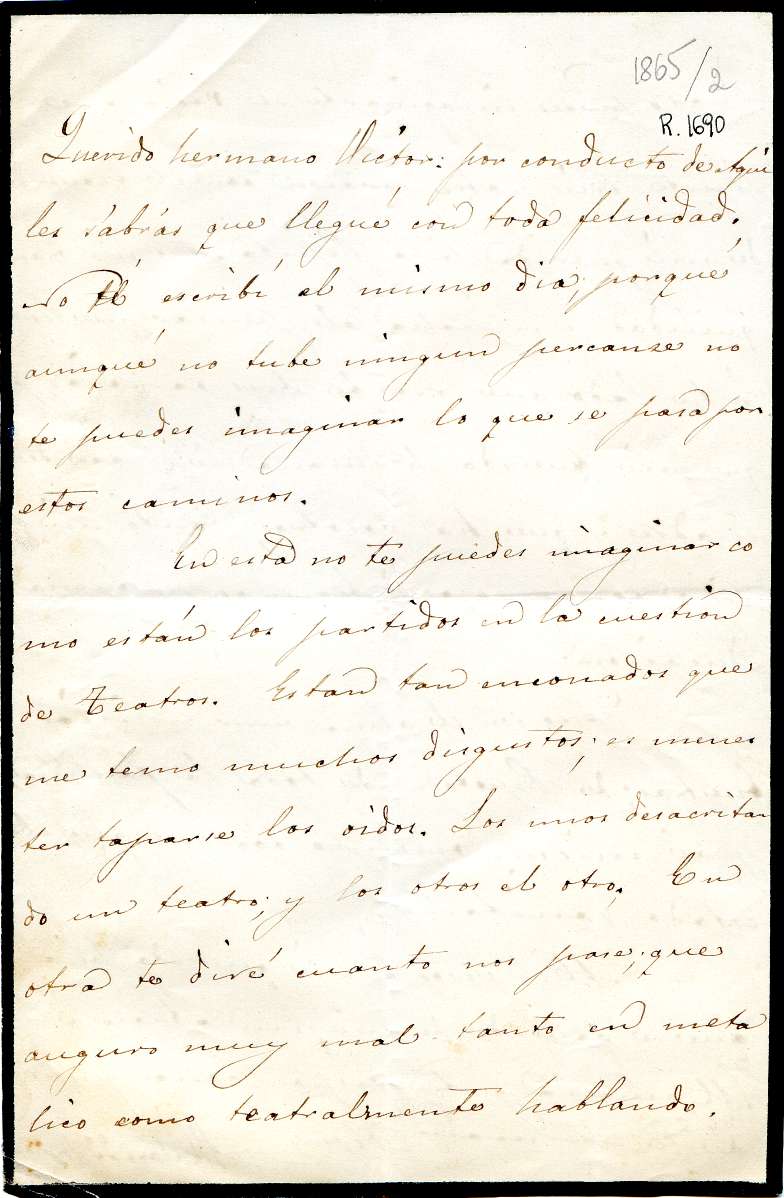 1865/2
R. 1690
Querido hermano Victor: por conducto de Aqui
les sabrás que llegué con toda felicidad.
No té escribí el mismo dia, porqué
aunqué no tube ningun percanze no
te puedes imaginar lo que se pasa por
estos caminos.
En esta no te puedes imaginar co
mo están los partidos en la cuestión
de Teatros. Estan tan enconados que
me temo muchos disgustos; es menes
ter taparse los oidos. Los unos desacritan
do un teatro; y los otros el otro. En
otra te diré cuanto nos pase; que
auguro muy mal tanto en meta
lico como teatralmente hablando.